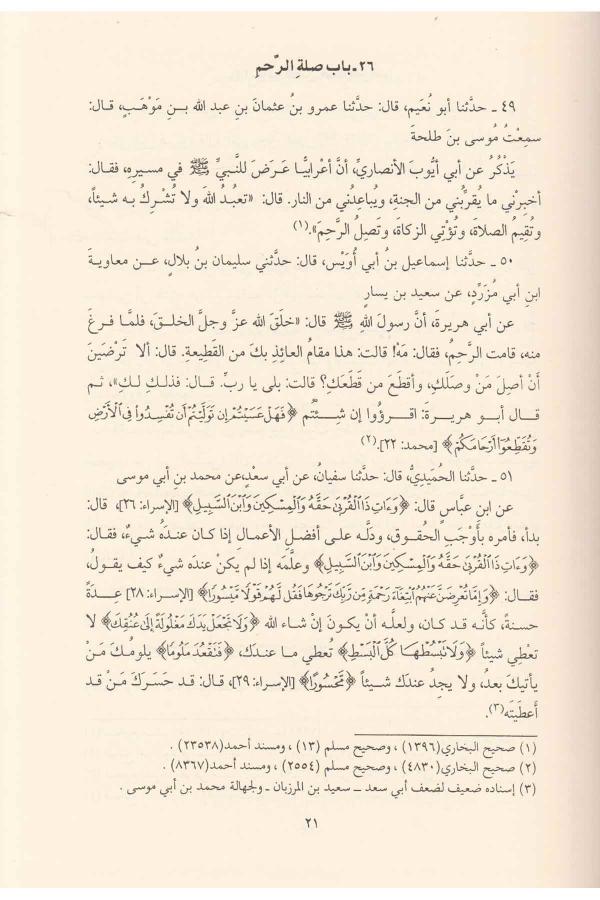 ٢٦ـ باب صلةِ الرَّحمِ
٤٩ ـ حدَّثنا أبو نُعَيم، قال: حدَّثنا عمرو بنُ عثمانَ بنِ عبد الله بـنِ مَوْهَبٍ، قـال:
سمعْتُ مُوسى بنَ طلحةَ
يَذْكُرُ عن أبي أيُّوبَ الأنصاريِّ، أنَّ أعْرابيـًّا عَـرَضَ للنَّبـيِّ ﷺ في مسيرِهِ، فقـال:
أخبِرْني ما يُقرِّبُني من الجنةِ، ويُباعِدُني من النار. قال: «تعبُدُ اللهَ ولا تُشْـرِكُ بـه شيئـاً،
وتُقِيمُ الصلاةَ، وتُؤْتي الزكاةَ، وتَصِلُ الرَّحِمَ».(١)
٥٠ ـ حدَّثنا إسماعيل بنُ أبي أُوَيْس، قال: حدَّثني سليمان بنُ بلالٍ، عـن معاويـة
ابنِ أبي مُزَرِّدٍ، عن سعيد بن يسارٍ
عن أبي هريرةَ، أنَّ رسولَ اللهِ ﷺ قال: «خلَقَ الله عزَّ وجلَّ الخلـقَ، فلمَّا فـرغَ
منه، قامت الرَّحِمُ، فقال: مَهْ! قالت: هذا مقامُ العائذِ بكَ من القَطِيعةِ. قال: ألا تَرْضَيْنَ
أنْ أصِلَ مَنْ وصَلَكِ، وأقطَعَ من قَطَعَكِ؟ قالت: بلى يا ربِّ. قـال: فذلـكِ لـكِ»، ثـم
قـال أبـو هريـرةَ: اقـرؤُوا إن شِـئْتُم ﴿فَهَلْ عَسَيْتُمْ إِن تَوَلَّيْتُمْ أَن تُفْسِدُوا۟ فِى ٱلْأَرْضِ
وَتُقَطِّعُوٓا۟ أَرْحَامَكُمْ﴾ [محمد: ٢٢].(٢)
٥١ ـ حدَّثنا الحُمَيديُّ، قال: حدَّثنا سفيانُ، عن أبي سعْدٍ،عن محمد بنِ أبي موسى
عن ابن عبَّاسٍ قال: ﴿وَءَاتِ ذَا ٱلْقُرْبَىٰ حَقَّهُۥ وَٱلْمِسْكِينَ وَٱبْنَ ٱلسَّبِيلِ﴾ [الإسراء: ٢٦]، قال:
بدأ، فأمره بأوْجَبِ الحُقـوقِ، ودلَّـه علـى أفضـلِ الأعمـالِ إذا كـان عنـدَه شـيءٌ، فقـال:
﴿وَءَاتِ ذَا ٱلْقُرْبَىٰ حَقَّهُۥ وَٱلْمِسْكِينَ وَٱبْنَ ٱلسَّبِيلِ﴾ وعلَّمَه إذا لم يكنْ عندَه شيءٌ كيف يقولُ،
فقـال: ﴿وَإِمَّا تُعْرِضَنَّ عَنْهُمُ ٱبْتِغَآءَ رَحْمَةٍ مِّن رَّبِّكَ تَرْجُوهَا فَقُل لَّهُمْ قَوْلًا مَّيْسُورًا﴾ [الإسراء: ٢٨] عِـدَةً
حسنةً، كأنَّـه قد كـان، ولعلَّـه أنْ يكـونَ إنْ شـاء الله ﴿وَلَا تَجْعَلْ يَدَكَ مَغْلُولَةً إِلَىٰ عُنُقِكَ﴾ لا
تعطي شيئاً ﴿وَلَا تَبْسُطْهَا كُلَّ ٱلْبَسْطِ﴾ تُعطي مـا عنـدكَ، ﴿فَتَقْعُدَ مَلُومًا﴾ يلومُـك مَـنْ
يأتيكَ بعدُ، ولا يجدُ عندكَ شيئاً ﴿مَّحْسُورًا﴾ [الإسراء: ٢٩]، قـال: قد حَسَركَ مَـنْ قد
أعطيْتَه(٣).
(١) صحيح البخاري(١٣٩٦) ، وصحيح مسلم (١٣) ، ومسند أحمد(٢٣٥٣٨) .
(٢) صحيح البخاري(٤٨٣٠) ، وصحيح مسلم (٢٥٥٤) ، ومسند أحمد(٨٣٦٧) .
(٣) إسناده ضعيف لضعف أبي سعد ــ سعيد بن المرزبان ـ ولجهالة محمد بن أبي موسى .
٢١